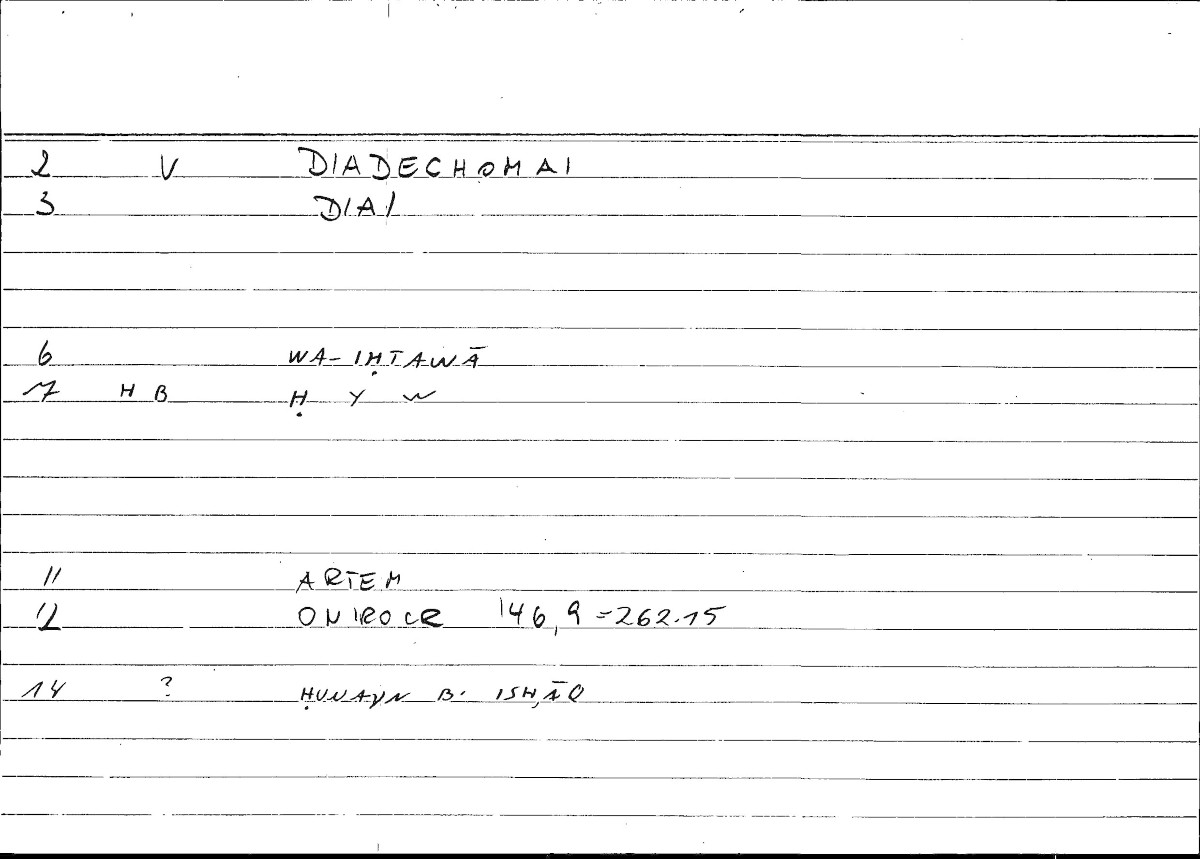 2 V DIADECHOMAI
3 DIAI
6 WA-IḤTAWĀ
7 H B Ḥ Y W
11 ARTEM
12 ONIROCR 146,9=262.15
14 ? ḤUNAYN B. ISḤĀQ